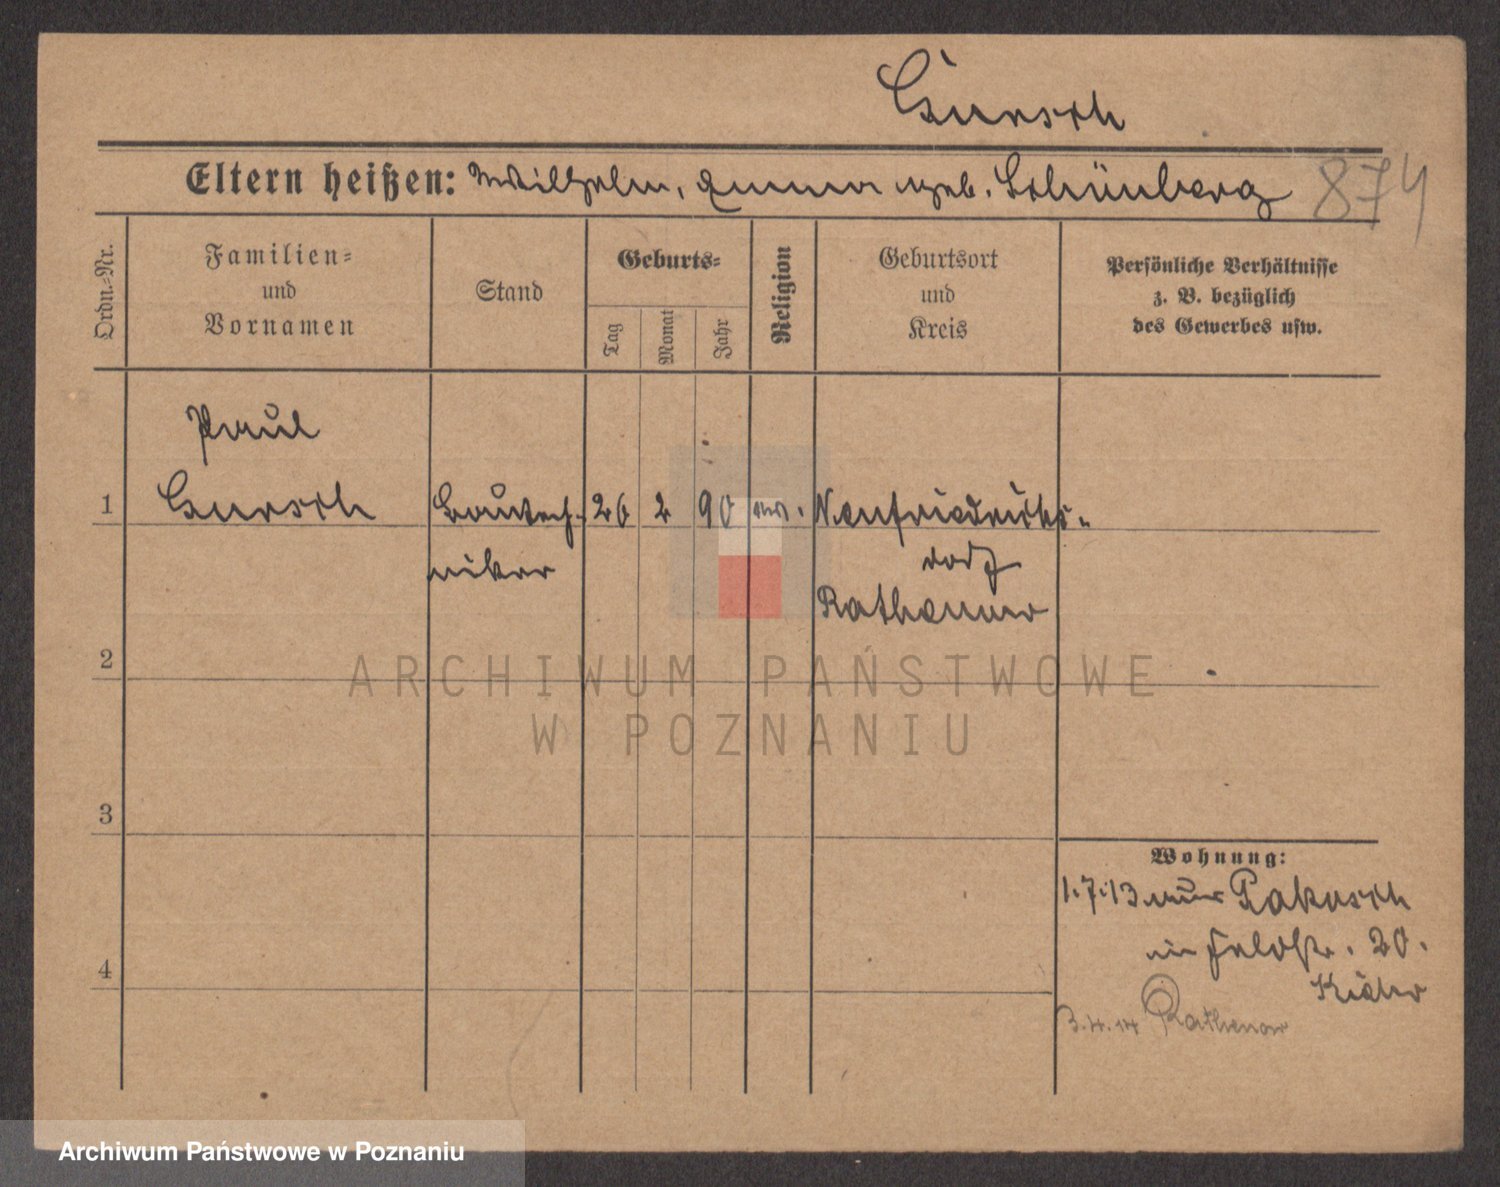 Gursch
Eltern heißen: Wilhelm, Emma geb. Schünberg
874
Ordn.-Nr.
Familien=
und
Vornamen
Stand
Geburts=
Tag
Monat
Jahr
Religion
Geburtsort
und
Kreis
Persönliche Verhältnisse
z. B. bezüglich
des Gewerbes usw.
Paul
1 Gursch Bautech- 26 2 90 ev. Neufriedrichs-
niker dorf
Rathenow
2
3
4
Wohnung:
1.7.13 aus Pakosch
in Feldstr. 20.
3.4.14 Rathenow
ARCHIWUM PAŃSTWOWE
W POZNANIU
Archiwum Państwowe w Poznaniu